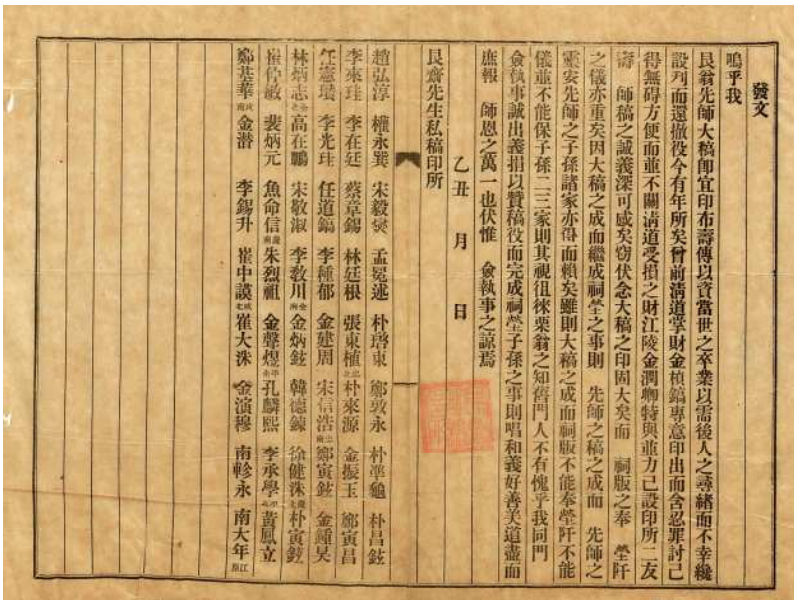 發文
嗚乎我
艮翁先師大稿卽宜印布壽傳以資當世之卒業以需後人之尋緖而不幸纔
設列而還撤役今有年所矣曾前淸道掌財金楨鎬專意印出而含忍罪討己
得無碍方便而並不關淸道受損之財江陵金潤卿特與並力己設印所二友
壽 師稿之誠義深可感矣窃伏念大稿之印固大矣而 祠版之奉 塋阡
之儀亦重矣因大稿之成而繼成祠塋之事則 先師之稿之成而 先師之
靈安先師之子孫諸家亦得而賴矣雖則大稿之成而祠版不能奉塋阡不能
儀並不能保子孫二三家則其視徂徠栗翁之知舊門人不有愧乎我同門
僉執事誠出義捐以贊稿役而完成祠塋子孫之事則唱和義好善美道盡而
庶報 師恩之萬一也伏惟 僉執事之諒焉
乙丑 月 日
艮齋先生私稿印所
趙弘淳 權永巽 宋毅燮 孟冕述 朴瑃東 鄭敦永 朴準龜 朴昌鉉
李來珪 李在廷 蔡章錫 林廷根 張東植 朴來源 金振玉 鄭寅昌
任憲瓚 李光珪 任道鎬 李種郁 金建周 宋信浩 鄭寅鉉 金鍾旲
林炳志 高在鵬 宋敬淑 李敎川 金炳鉉 韓德鍊 徐健洙 朴寅鉉
崔仲敏 裴炳元 魚命信 朱烈祖 金聲煜 孔麟熙 李承學 黃鳳立
鄭基華 金潛 李錫升 崔中謨 崔大洙 金演穆 南軫永 南大年